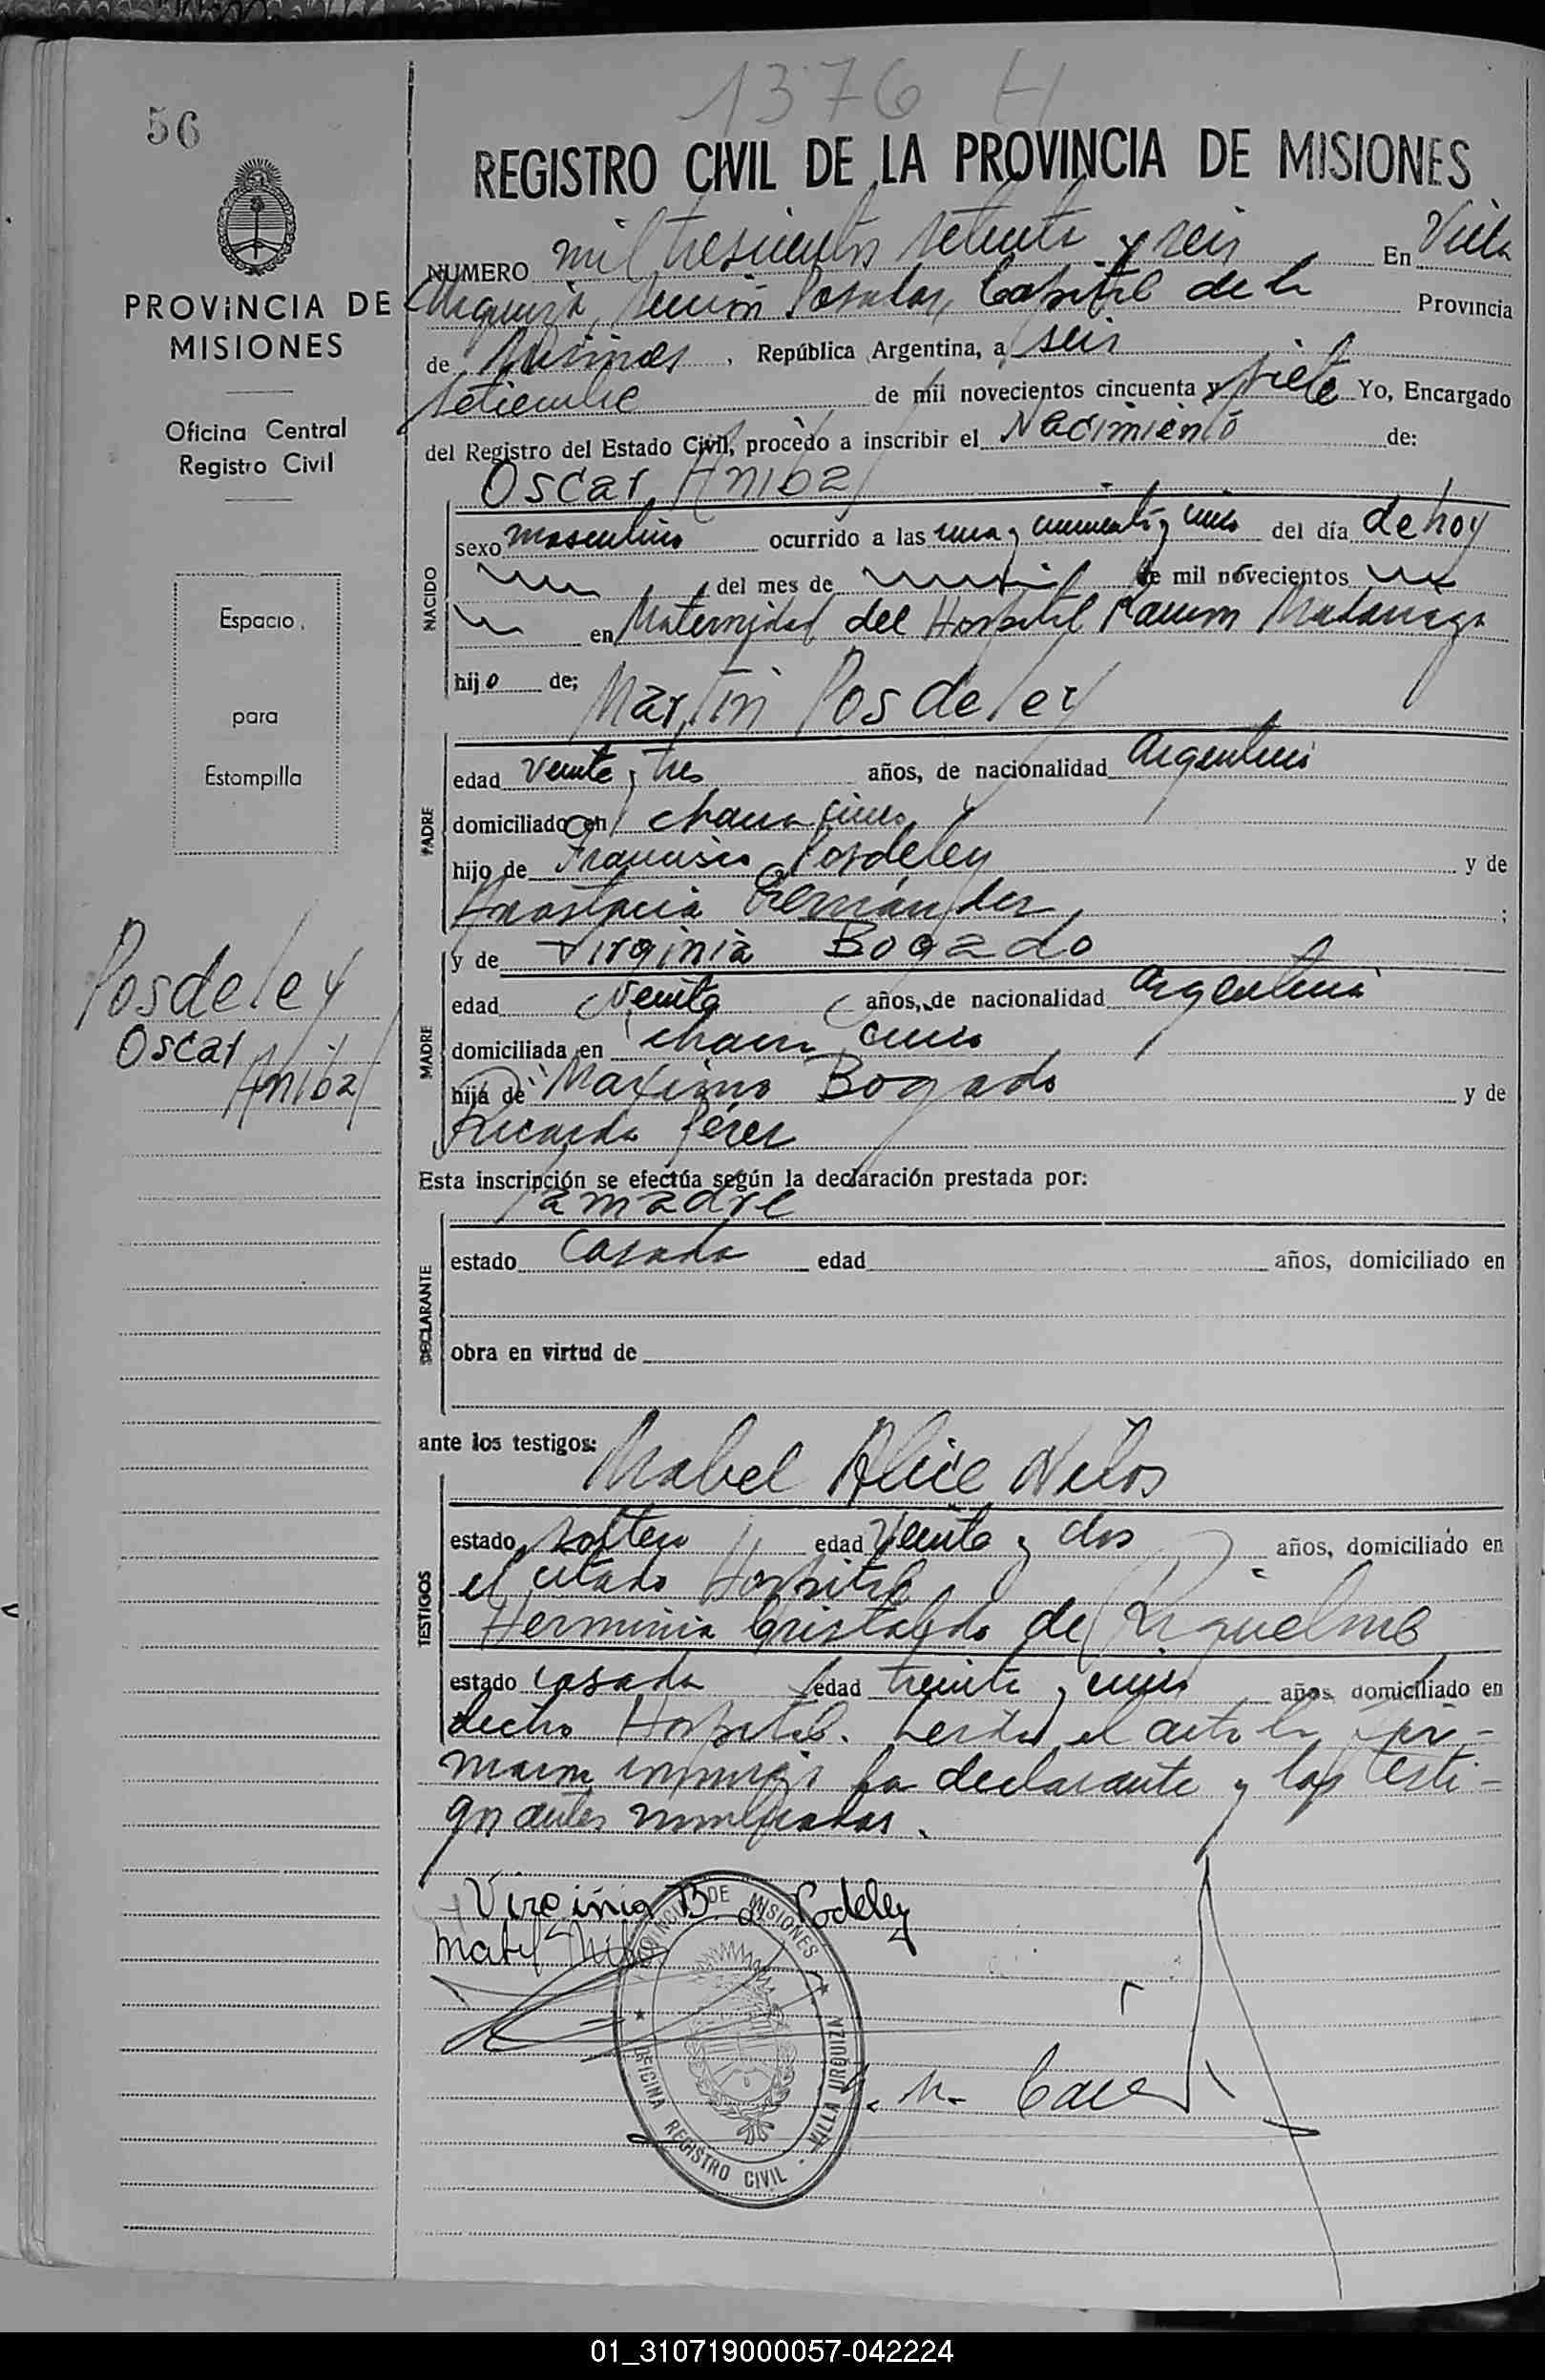 1376 H
56
REGISTRO CIVIL DE LA PROVINCIA DE MISIONES
PROVINCIA DE
MISIONES
Oficina Central
Registro Civil
Espacio
para
Estampilla
Posdeley
Oscar
Anibal
NUMERO mil trescientos setenta y seis En Villa
Urquiza, Sección Posadas, Capital de la Provincia
de Misiones, República Argentina, a seis
setiembre de mil novecientos cincuenta y siete Yo, Encargado
del Registro del Estado Civil, procedo a inscribir el Nacimiento de:
Oscar Anibal
NACIDO
sexo masculino ocurrido a las una y cincuenta y cinco del día de hoy
del mes de de mil novecientos
en Maternidad del Hospital Ramón Madariaga
hijo de;
Martin Posdeley
PADRE
edad veinte y tres años, de nacionalidad argentino
domiciliado en
hijo de Francisco Posdeley y de
Anastacia Fernández ;
y de Virginia Bogado
MADRE
edad veinte años, de nacionalidad argentina
domiciliada en
hija de Maximo Bogado y de
Ricarda Pérez
Esta inscripción se efectúa según la declaración prestada por:
la madre
DECLARANTE
estado casada edad años, domiciliado en
obra en virtud de
ante los testigos:
Mabel Alice
TESTIGOS
estado soltera edad veinte y dos años, domiciliado en
el citado Hospital
Herminia Cristaldo de Riquelme
estado casada edad treinta y cinco años domiciliado en
dicho Hospital. Leída el acta la fir-
maron conmigo la declarante y los testi-
gos antes nombrados.
Virginia B. de Podeley
PROVINCIA DE MISIONES
OFICINA REGISTRO CIVIL - VILLA URQUIZA
01_310719000057-042224